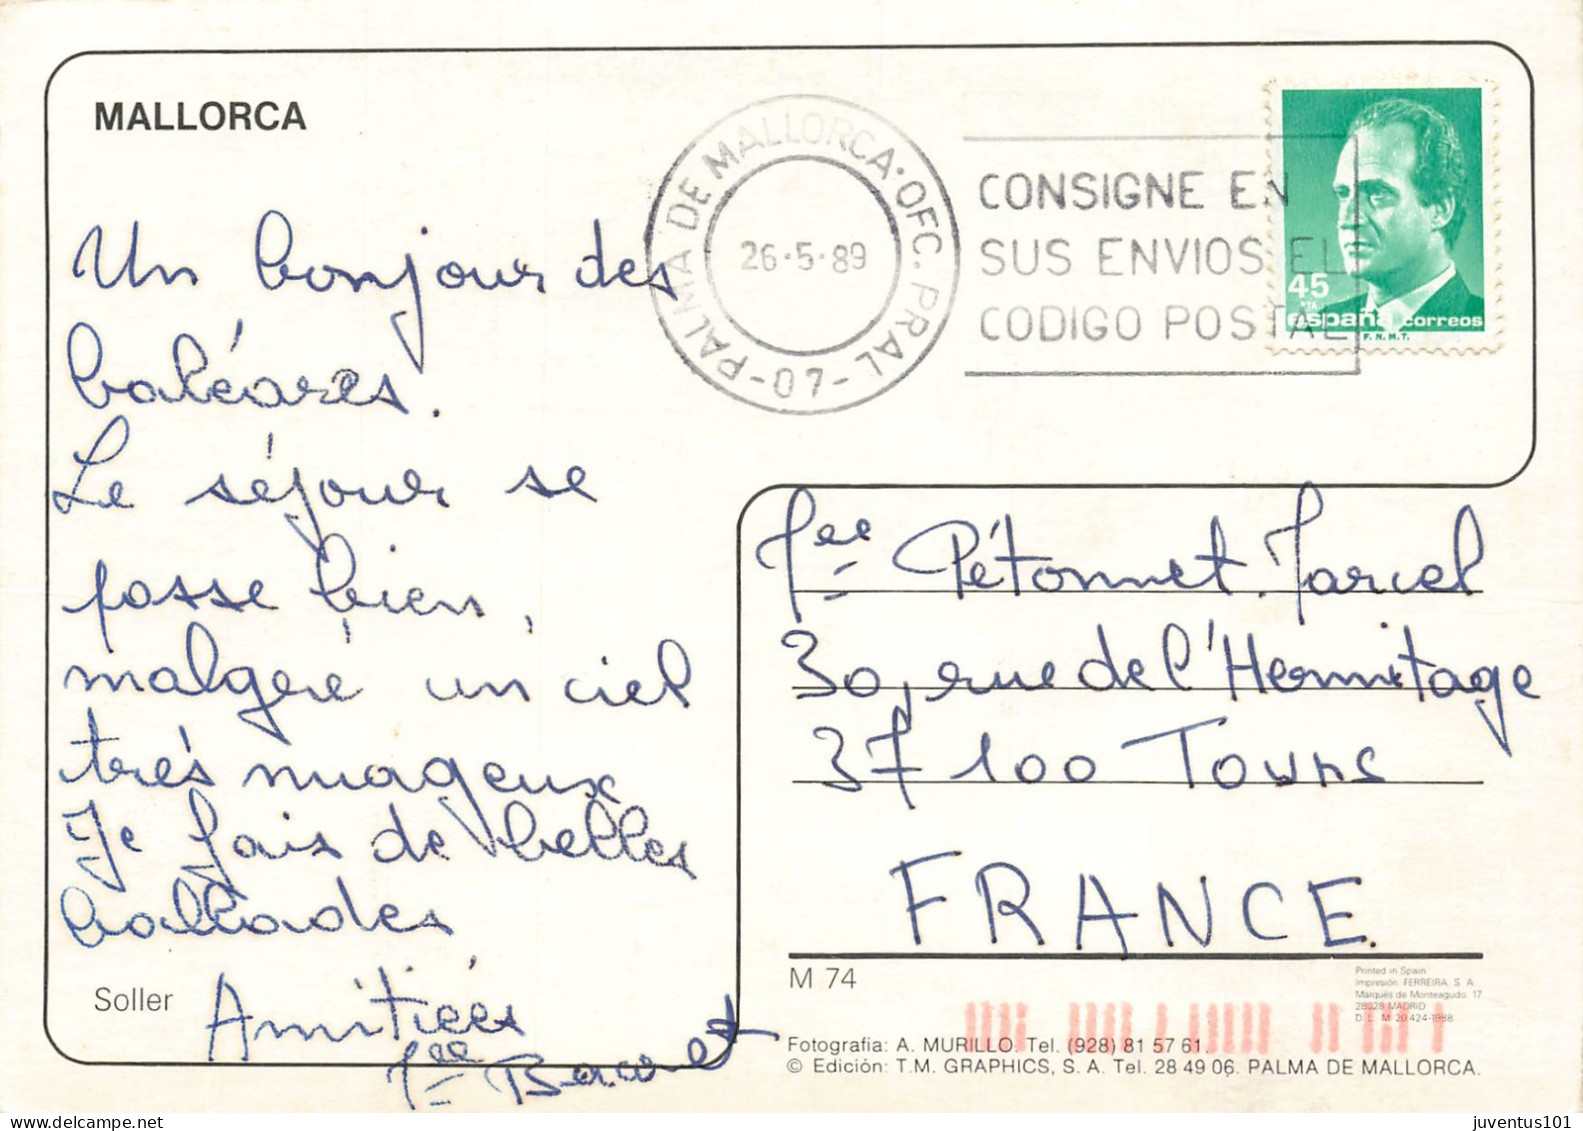 MALLORCA
PALMA DE MALLORCA · OFC. PRAL - 07 -
26·5·89
CONSIGNE EN
SUS ENVIOS EL
CODIGO POSTAL
45
PTA
españa correos
F.N.M.T.
Un bonjour des
baléares.
Le séjour se
passe bien,
malgré un ciel
très nuageux
Je fais de belles
ballades
Amitiés
Soller
Pétonnet Marcel
30, rue de l'Hermitage
37100 Tours
FRANCE.
M 74
Printed in Spain
Impresión: FERREIRA, S. A.
Marqués de Monteagudo, 17
28028 MADRID
D. L. M 20.424-1988
Fotografia: A. MURILLO. Tel. (928) 81 57 61.
© Edición: T.M. GRAPHICS, S. A. Tel. 28 49 06. PALMA DE MALLORCA.
juventus101